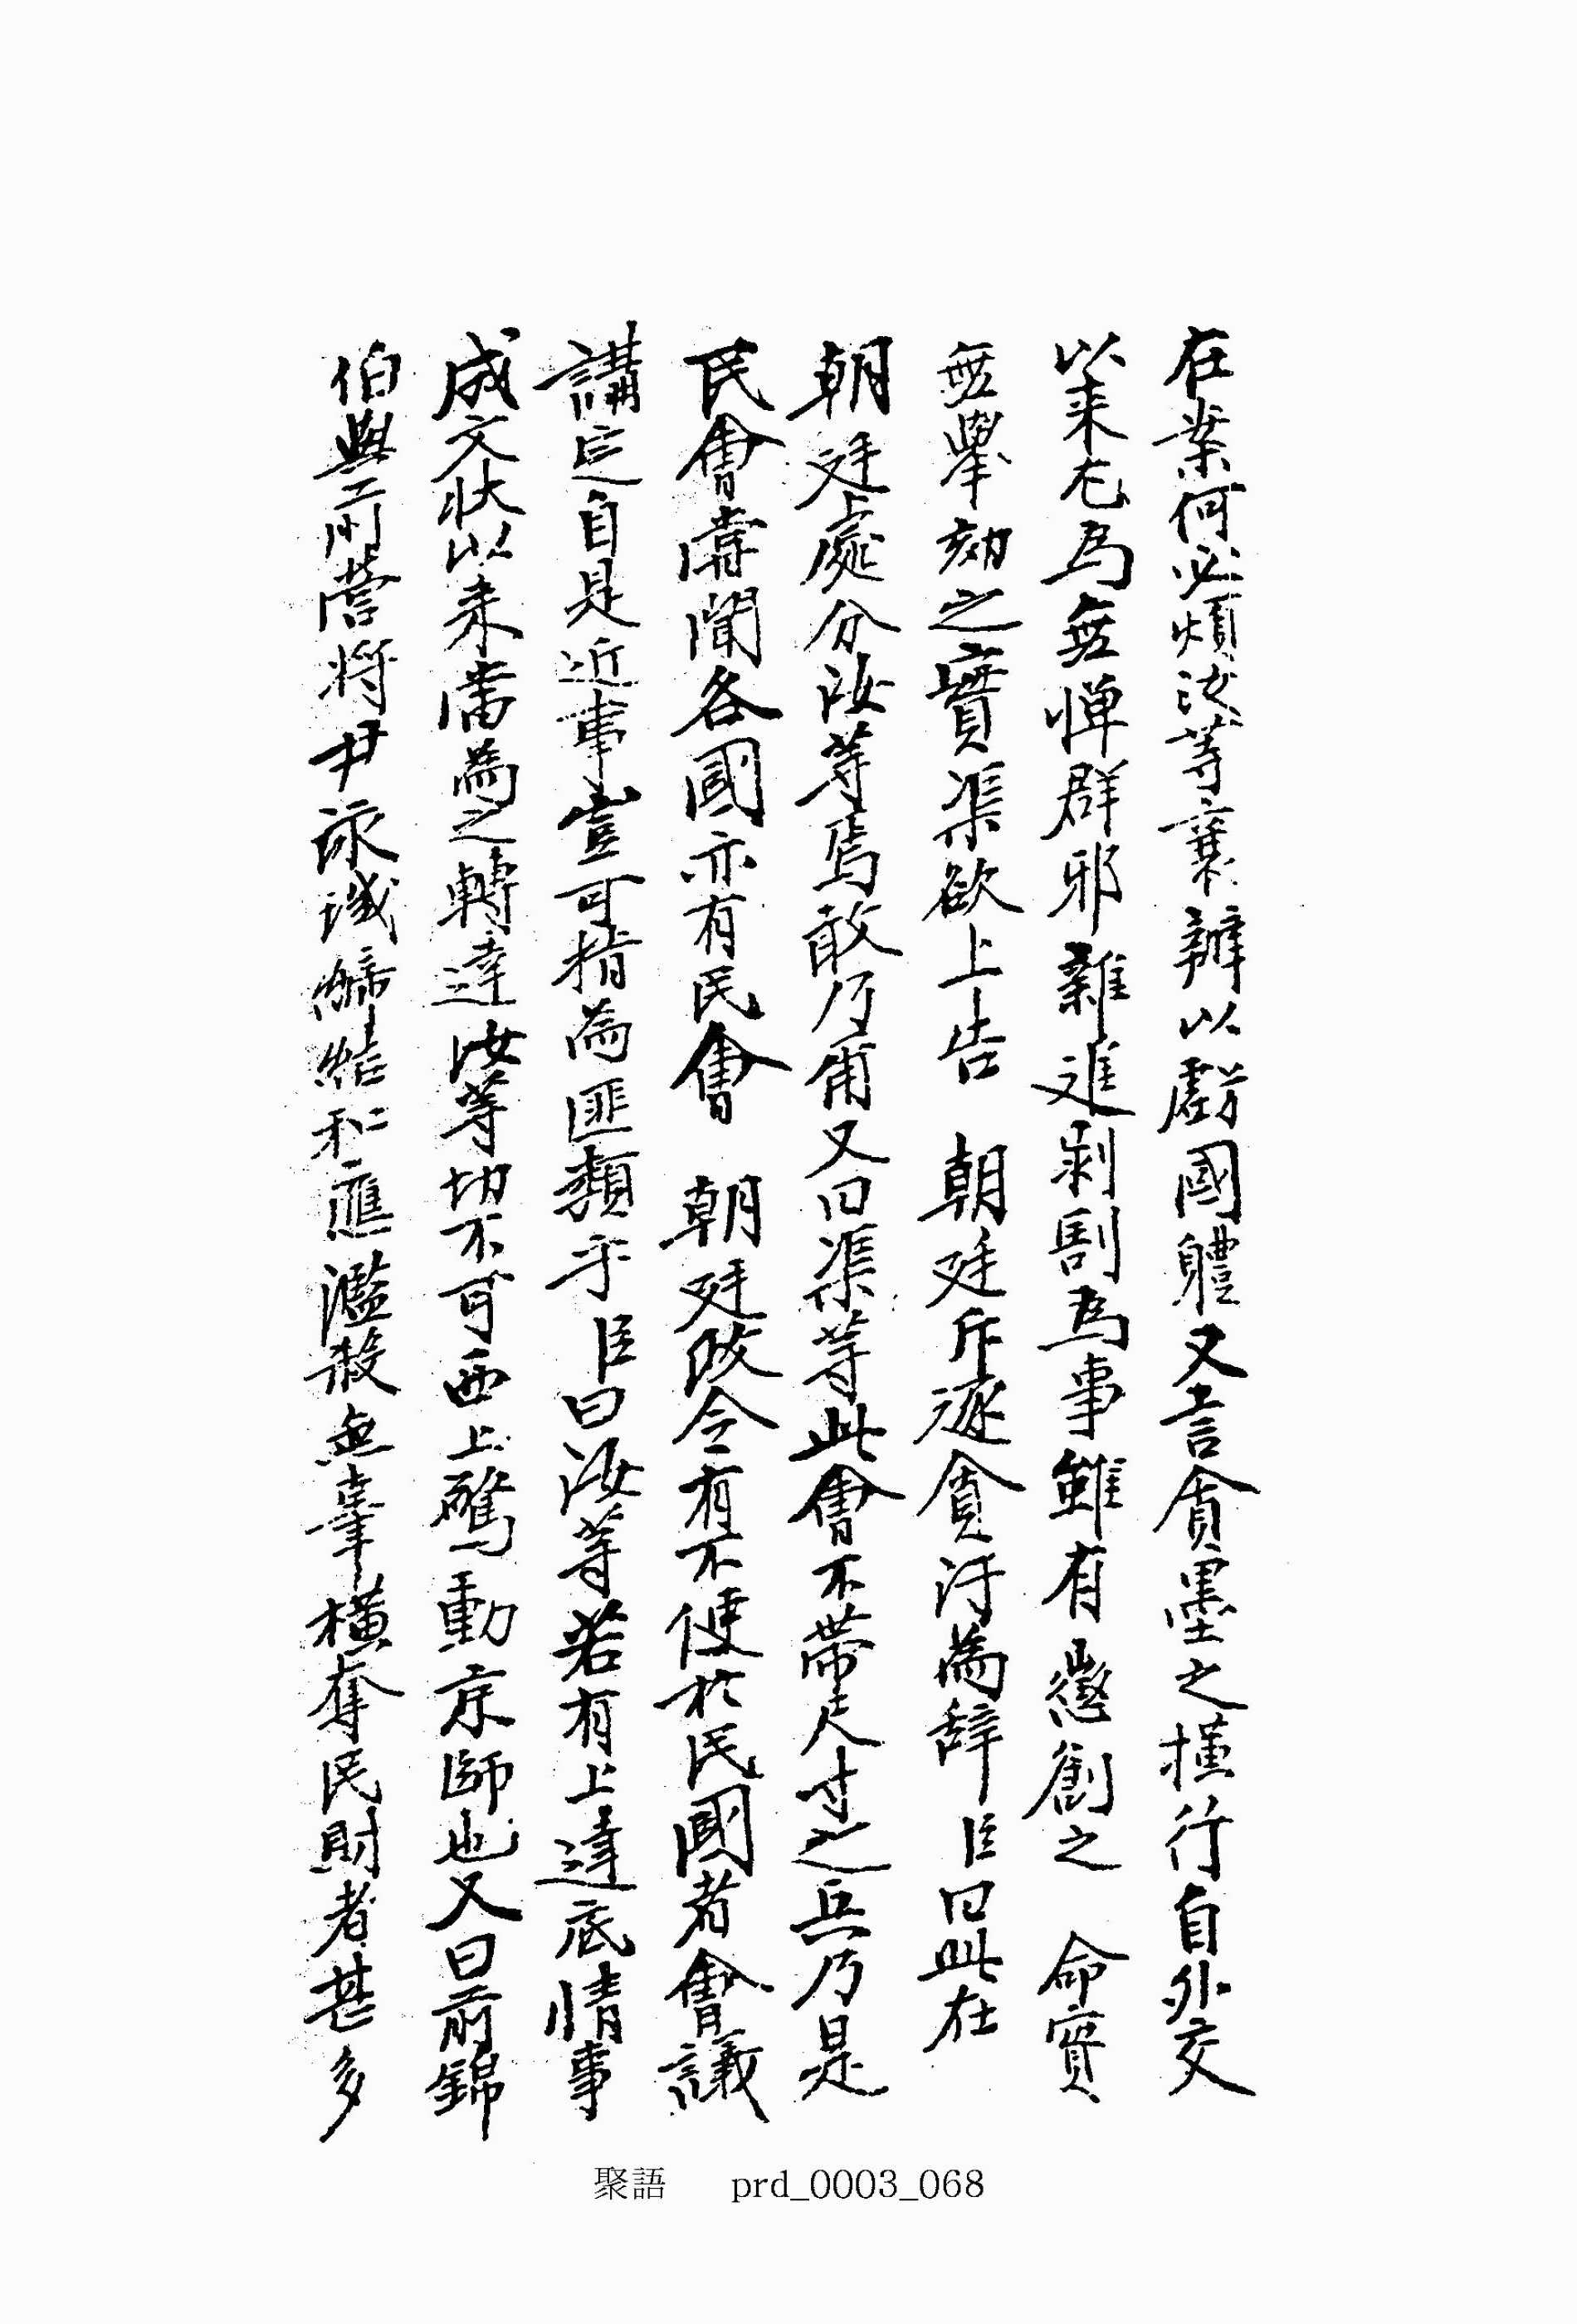 在業何必煩汝等襄辦以虧國體又言貪墨之橫行自外交
以來尤爲無憚群邪雜進剝割爲事雖有懲創之 命實
無擧劾之實渠欲上告 朝廷斥逐貪汚為辞臣曰此在
朝廷處分汝等焉敢乃爾又曰渠等此會不帶尺寸之兵乃是
民會甞聞各國亦有民會 朝廷政令有不便於民國者會議
講定自是近事豈可指為匪類乎臣曰汝等若有上達底情事
成文狀以來當為之轉達汝等切不可西上驚動京師也又曰前錦
伯與前營將尹泳璣締結和應濫殺無辜橫奪民財者甚多
聚語 prd_0003_068